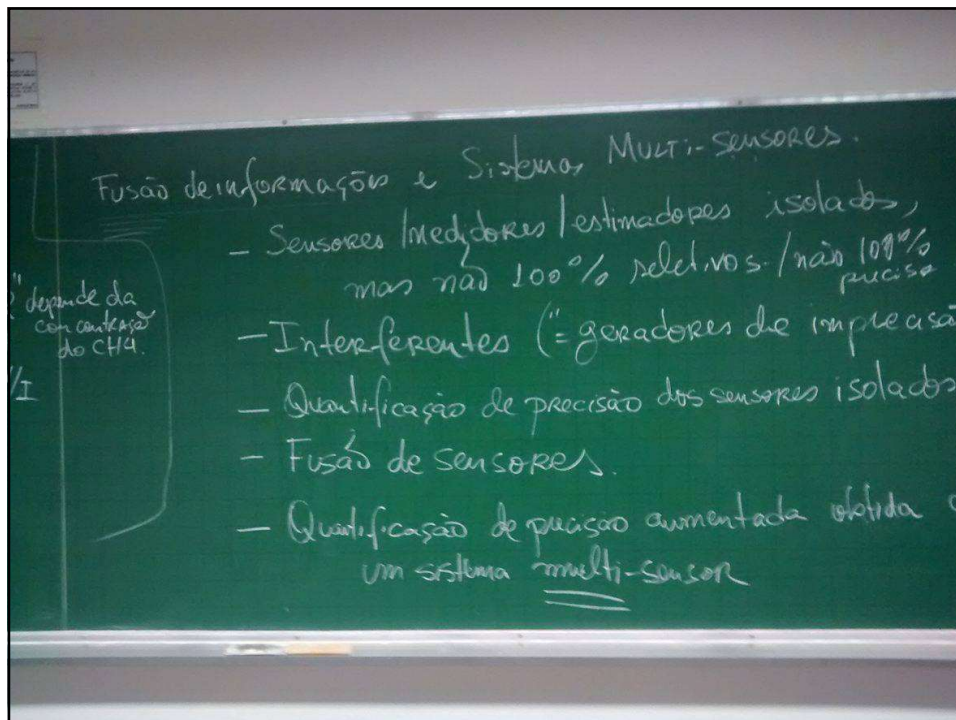 Fusão de informações e Sistemas Multi-sensores.
- Sensores/medidores/estimadores isolados,
mas não 100% seletivos./não 100%
preciso
- Interferentes ("=geradores de imprecisã
- Quantificação de precisão dos sensores isolados
- Fusão de sensores.
- Quantificação de precisão aumentada obtida
um sistema multi-sensor
" depende da
concentração
do CH4.
/I